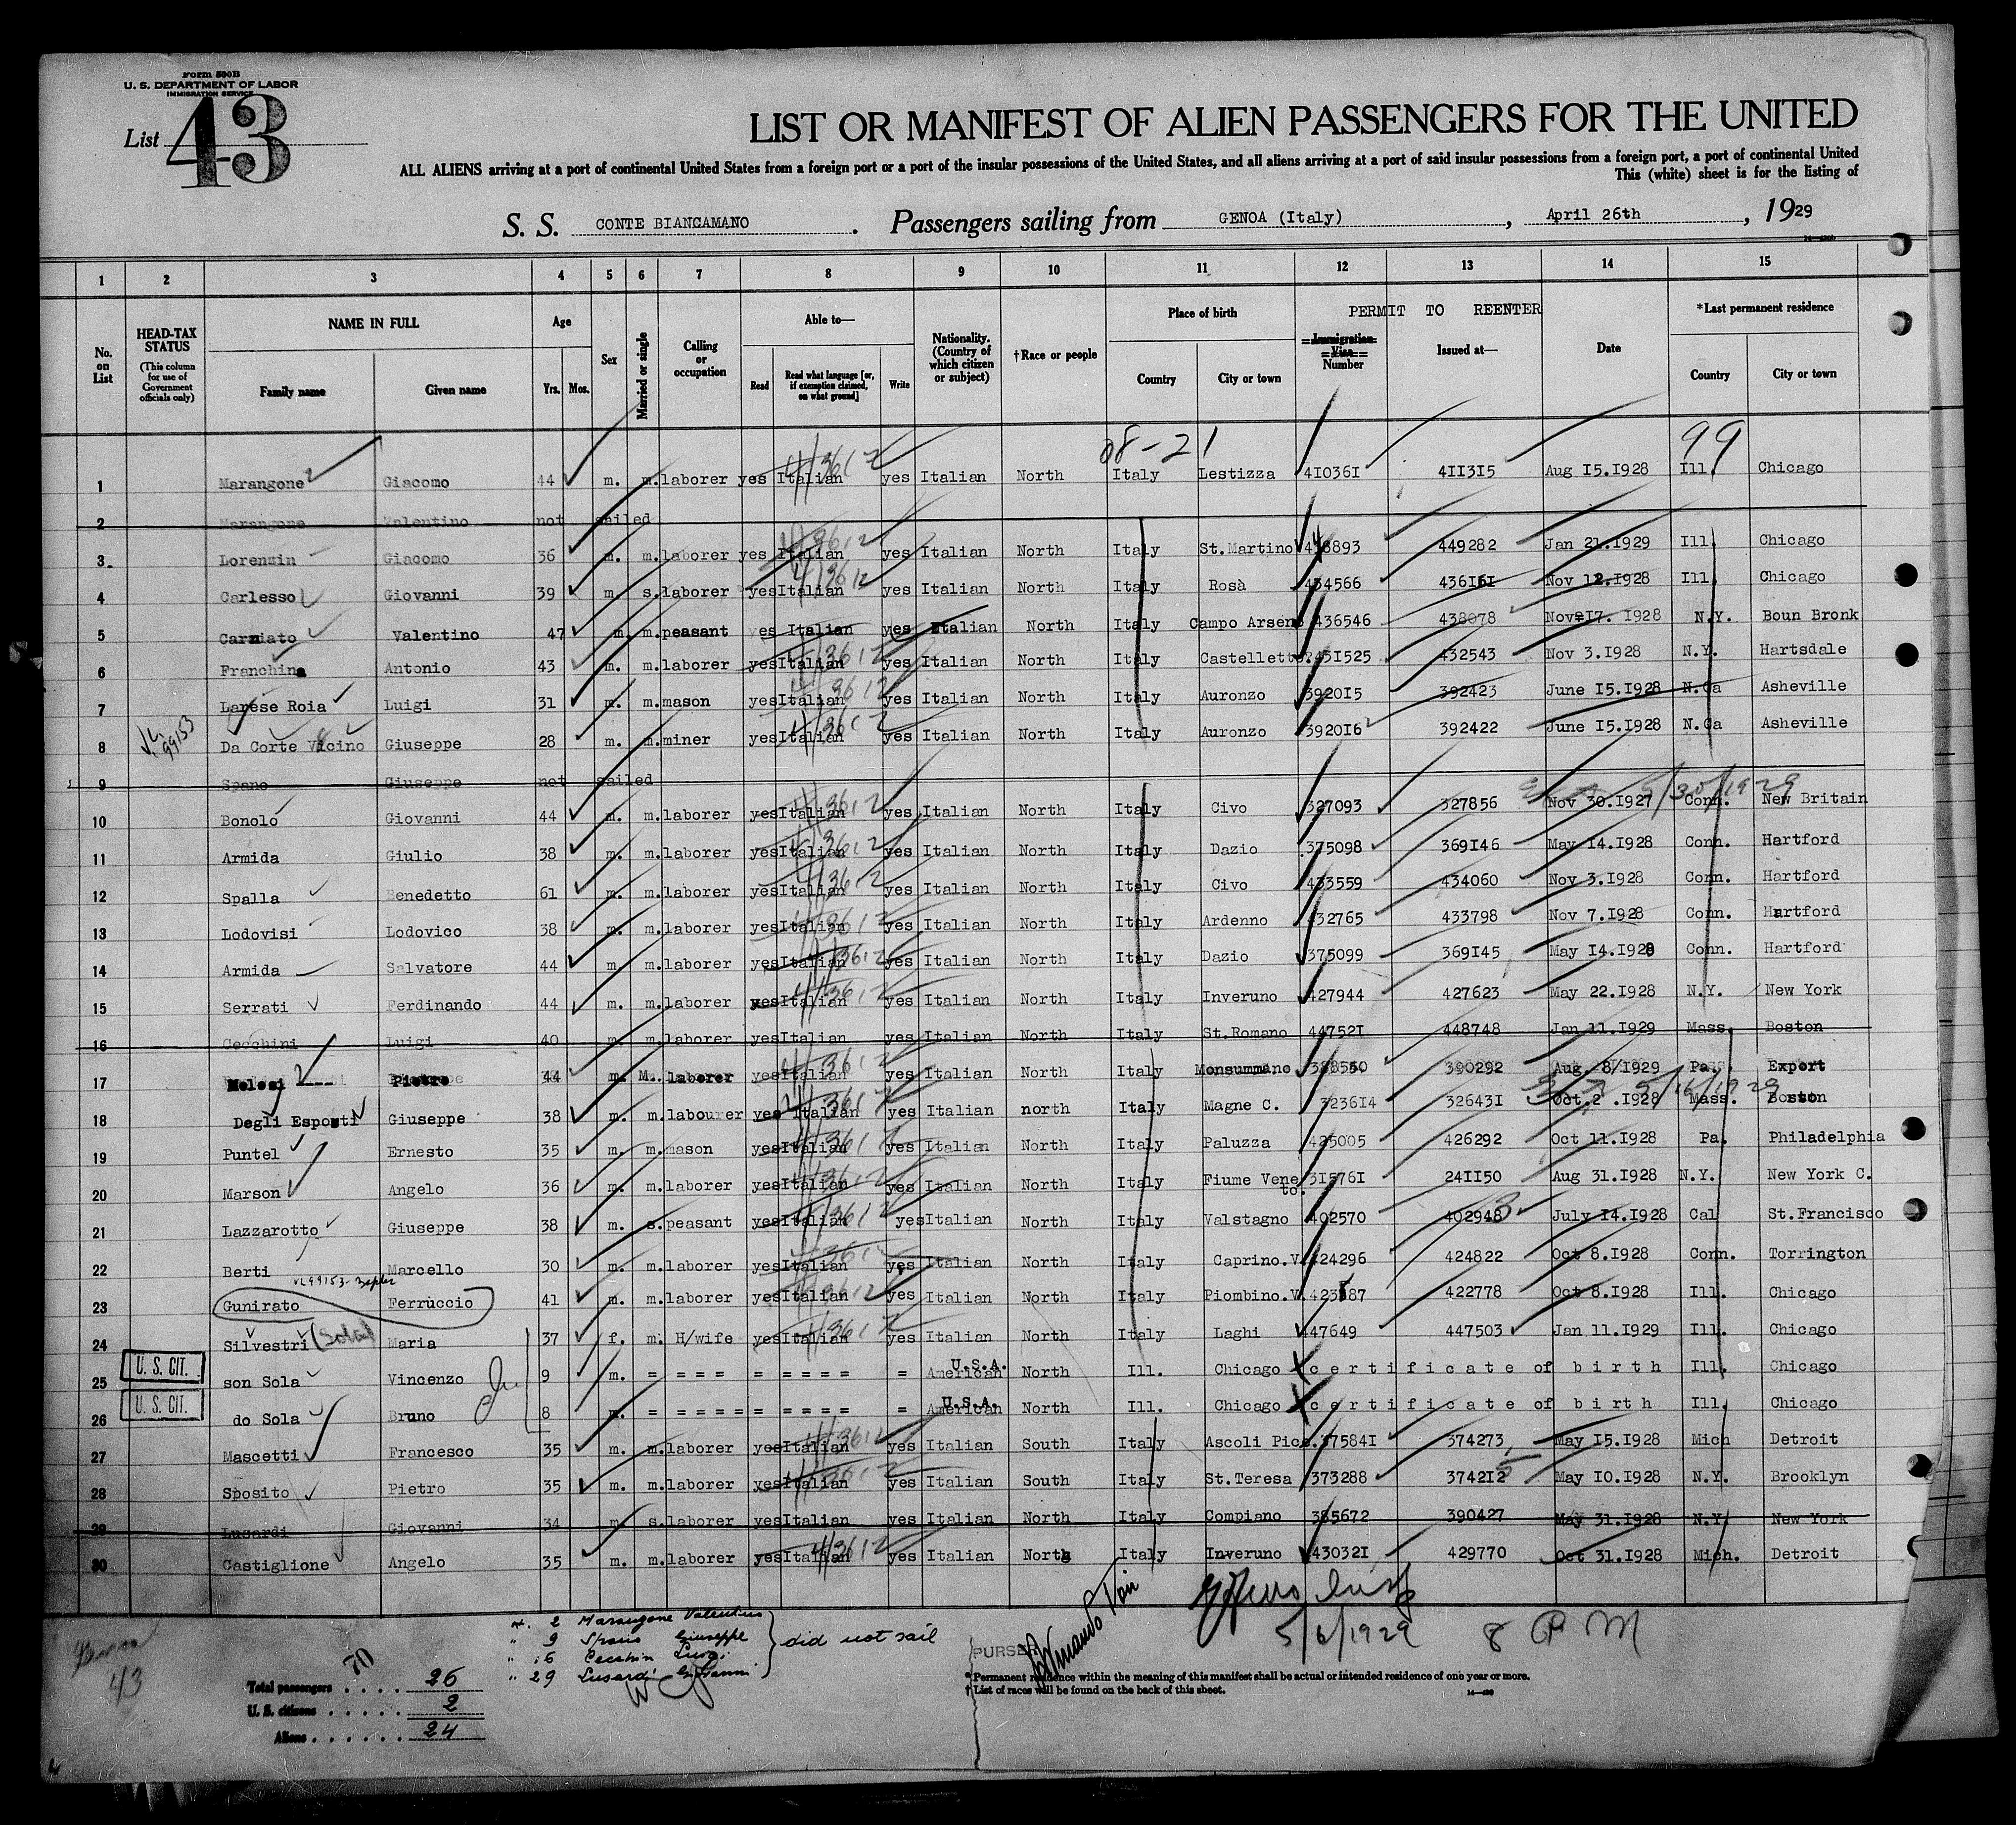 Form 500B
U. S. DEPARTMENT OF LABOR
IMMIGRATION SERVICE
List 43
LIST OR MANIFEST OF ALIEN PASSENGERS FOR THE UNITED
ALL ALIENS arriving at a port of continental United States from a foreign port or a port of the insular possessions of the United States, and all aliens arriving at a port of said insular possessions from a foreign port, a port of continental United
This (white) sheet is for the listing of
S. S. CONTE BIANCAMANO . Passengers sailing from GENOA (Italy) , April 26th , 1929
1 2 3 4 5 6 7 8 9 10 11 12 13 14 15
No. on List
HEAD-TAX STATUS (This column for use of Government officials only)
NAME IN FULL Family name Given name
Age Yrs. Mos.
Sex
Married or single
Calling or occupation
Able to— Read Read what language [or, if exemption claimed, on what ground] Write
Nationality. (Country of which citizen or subject)
†Race or people
Place of birth Country City or town
PERMIT TO REENTER
Immigration Visa Number
Issued at—
Date
*Last permanent residence Country City or town
08-21 99
1 Marangone Giacomo 44 m. m. laborer yes Italian yes Italian North Italy Lestizza 410361 411315 Aug 15.1928 Ill Chicago
2 Marangone Valentino not sailed
3 Lorenzin Giacomo 36 m. m. laborer yes Italian yes Italian North Italy St.Martino 448893 449282 Jan 21.1929 Ill Chicago
4 Carlesso Giovanni 39 m s. laborer yes Italian yes Italian North Italy Rosà 434566 436161 Nov 12.1928 Ill Chicago
5 Carniato Valentino 47 m. m. peasant yes Italian yes Italian North Italy Campo Arseno 436546 438078 Nov 17. 1928 N.Y. Boun Bronk
6 Franchina Antonio 43 m. m. laborer yes Italian yes Italian North Italy Castelletto 431525 432543 Nov 3.1928 N.Y. Hartsdale
7 Larese Roia Luigi 31 m. m. mason yes Italian yes Italian North Italy Auronzo 392015 392423 June 15.1928 N.Ca Asheville
8 99153 Da Corte Vicino Giuseppe 28 m. m. miner yes Italian yes Italian North Italy Auronzo 392016 392422 June 15.1928 N.Ca Asheville
9 Spano Giuseppe not sailed
5/30/1929
10 Bonolo Giovanni 44 m. m. laborer yes Italian yes Italian North Italy Civo 327093 327856 Nov 30.1927 Conn. New Britain
11 Armida Giulio 38 m. m. laborer yes Italian yes Italian North Italy Dazio 375098 369146 May 14.1928 Conn. Hartford
12 Spalla Benedetto 61 m. m. laborer yes Italian yes Italian North Italy Civo 433559 434060 Nov 3.1928 Conn. Hartford
13 Lodovisi Lodovico 38 m. m. laborer yes Italian yes Italian North Italy Ardenno 432765 433798 Nov 7.1928 Conn. Hartford
14 Armida Salvatore 44 m m. laborer yes Italian yes Italian North Italy Dazio 375099 369145 May 14.1928 Conn. Hartford
15 Serrati Ferdinando 44 m. m. laborer yes Italian yes Italian North Italy Inveruno 427944 427623 May 22.1928 N.Y. New York
16 Cecchini Luigi 40 m. m. laborer yes Italian yes Italian North Italy St.Romano 447521 448748 Jan 11.1929 Mass. Boston
17 Melosi Pietro 44 m. M. laborer yes Italian yes Italian North Italy Monsummano 388550 390292 Aug. 8/1929 Pa. Export
5/16/1929
18 Degli Esposti Giuseppe 38 m. m. labourer yes Italian yes Italian north Italy Magne C. 323614 326431 Oct.2 .1928 Mass. Boston
19 Puntel Ernesto 35 m. m. mason yes Italian yes Italian North Italy Paluzza 425005 426292 Oct 11.1928 Pa. Philadelphia
20 Marson Angelo 36 m. m. laborer yes Italian yes Italian North Italy Fiume Veneto. 315761 241150 Aug 31.1928 N.Y. New York C.
21 Lazzarotto Giuseppe 38 m. s. peasant yes Italian yes Italian North Italy Valstagno 402570 402948 July 14.1928 Cal St.Francisco
22 Berti Marcello 30 m. m. laborer yes Italian yes Italian North Italy Caprino.V. 424296 424822 Oct 8.1928 Conn. Torrington
23 Gunirato Ferruccio 41 m. m. laborer yes Italian yes Italian North Italy Piombino.V. 423187 422778 Oct 8.1928 Ill. Chicago
24 Silvestri (Sola) Maria 37 f. m. H/wife yes Italian yes Italian North Italy Laghi 447649 447503 Jan 11.1929 Ill. Chicago
25 U. S. CIT. son Sola Vincenzo 9 m. = = = = = = = = = = = American U.S.A. North Ill. Chicago certificate of birth Ill. Chicago
26 U. S. CIT. do Sola Bruno 8 m. = = = = = = = = = = = = American U.S.A. North Ill. Chicago certificate of birth Ill. Chicago
27 Mascetti Francesco 35 m. m. laborer yes Italian yes Italian South Italy Ascoli Pic. 375841 374273 May 15.1928 Mich Detroit
28 Sposito Pietro 35 m. m. laborer yes Italian yes Italian South Italy St.Teresa 373288 374212 May 10.1928 N.Y. Brooklyn
29 Lusardi Giovanni 34 m s. laborer yes Italian yes Italian North Italy Compiano 385672 390427 May 31.1928 N.Y. New York
30 Castiglione Angelo 35 m. m. laborer yes Italian yes Italian North Italy Inveruno 430321 429770 Oct 31.1928 Mich. Detroit
5/6/1929 8 P M
2 Marangone Valentino
" 9 Spano Giuseppe
" 16 Cecchin Luigi
" 29 Lusardi Giovanni
did not sail
PURSER
43
70
Total passengers . . . . 26
U. S. citizens . . . . . 2
Aliens . . . . . . 24
* Permanent residence within the meaning of this manifest shall be actual or intended residence of one year or more.
† List of races will be found on the back of this sheet.